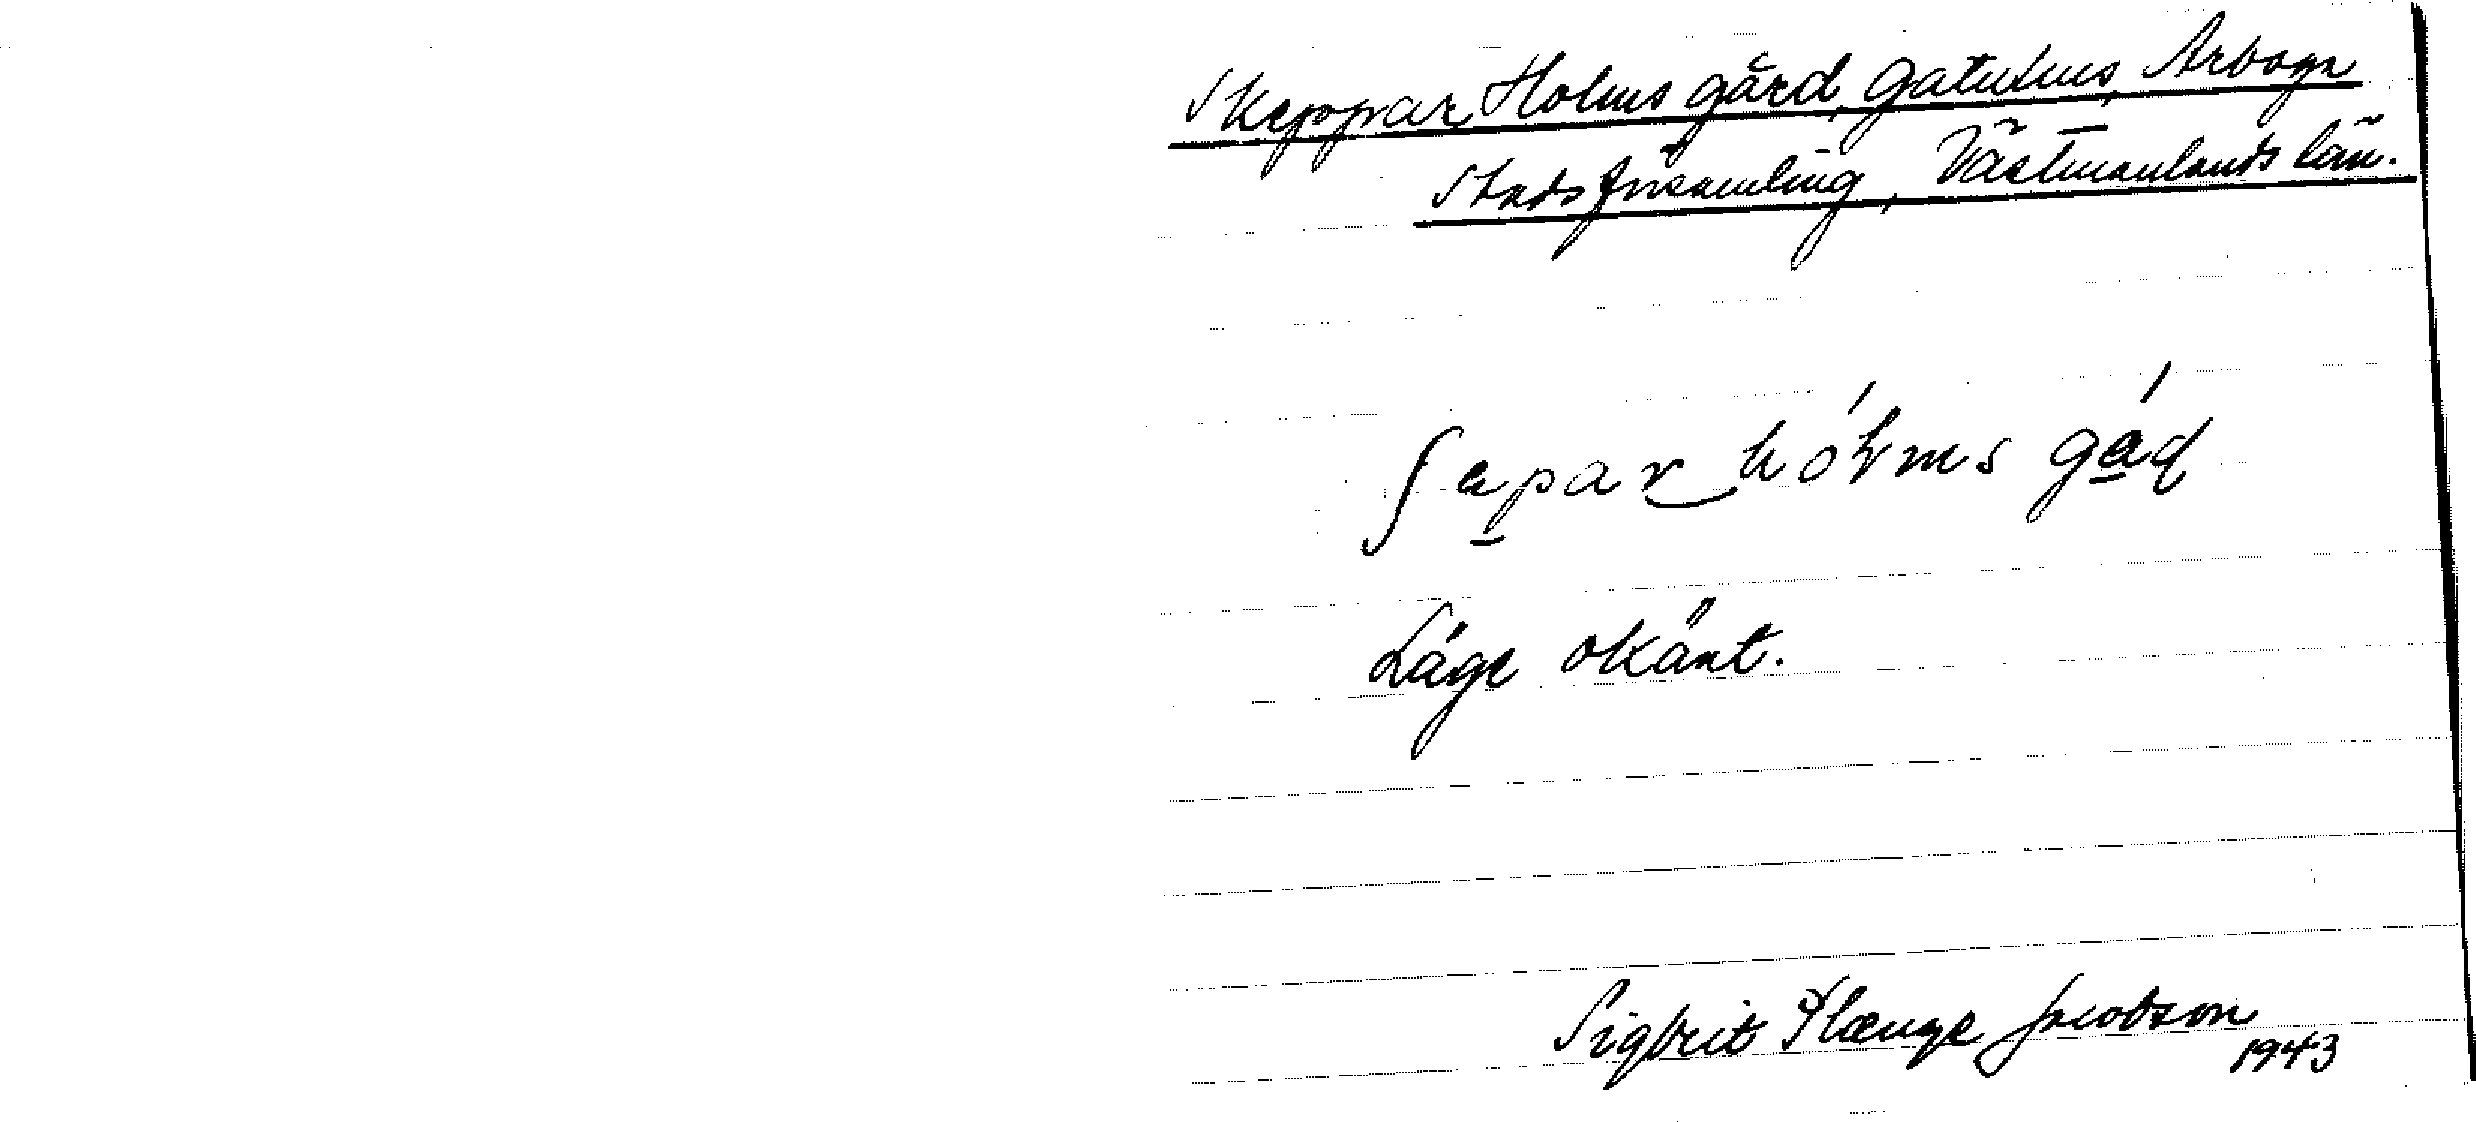 Skeppar Holms gård, gatuhus, Arboga
Stadsförsamling, Västmanlands län.
ʃepar hólms gáḍ
Läge okänt.
Sigbrit Plænge Jacobson
1943